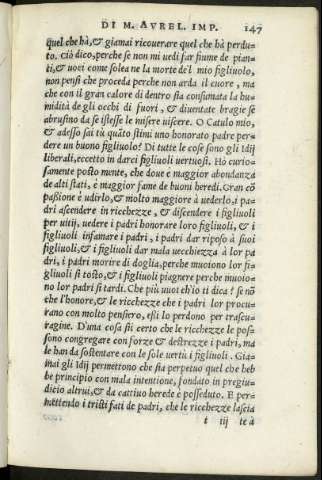 DI M. AVREL. IMP. 147
quel che hà, & giamai ricouerare quel che hà perdu-
to. ciò dico, perche se non mi uedi far fiume de pian-
ti, & uoci come solea ne la morte del mio figliuolo,
non pensi che proceda perche non arda il cuore, ma
che con il gran calore di dentro sia consumata la hu-
midità de gli occhi di fuori, & diuentate bragie se
abrusino da se istesse le misere uiscere. O Catulo mio,
& adesso sai tu quãto stimi uno honorato padre per-
dere un buono figliuolo? Di tutte le cose sono gli Idij
liberali, eccetto in darci figliuoli uertuosi. Hò curio-
samente posto mente, che doue è maggior abondanza
de alti stati, è maggior fame de buoni heredi. Gran cõ
passione è udirlo, & molto maggiore à uederlo, i pa-
dri ascendere in ricchezze, & discendere i figliuoli
per uitij, uedere i padri honorare loro figliuoli, & i
figliuoli infamare i padri, i padri dar riposo à suoi
figliuoli, & i figliuoli dar mala uecchiezza à lor pa
dri, i padri morire di doglia, perche muoiono lor fi-
gliuoli si tosto, & i figliuoli piagnere perche muoio-
no lor padri si tardi. Che più uuoi ch'io ti dica? se nõ
che l'honore, & le ricchezze che i padri lor procu-
rano con molto pensiero, essi lo perdono per trascu-
ragine. D'una cosa sti certo che le ricchezze le pos-
sono congregare con forze & destrezze i padri, ma
le han da sostentare con le sole uertù i figliuoli. Gia-
mai gli Idij permettono che sia perpetuo quel che heb
be principio con mala intentione, fondato in pregiu-
dicio altrui, & da cattiuo herede è posseduto. E per-
mettendo i tristi fati de padri, che le ricchezze lascia
t iij te à